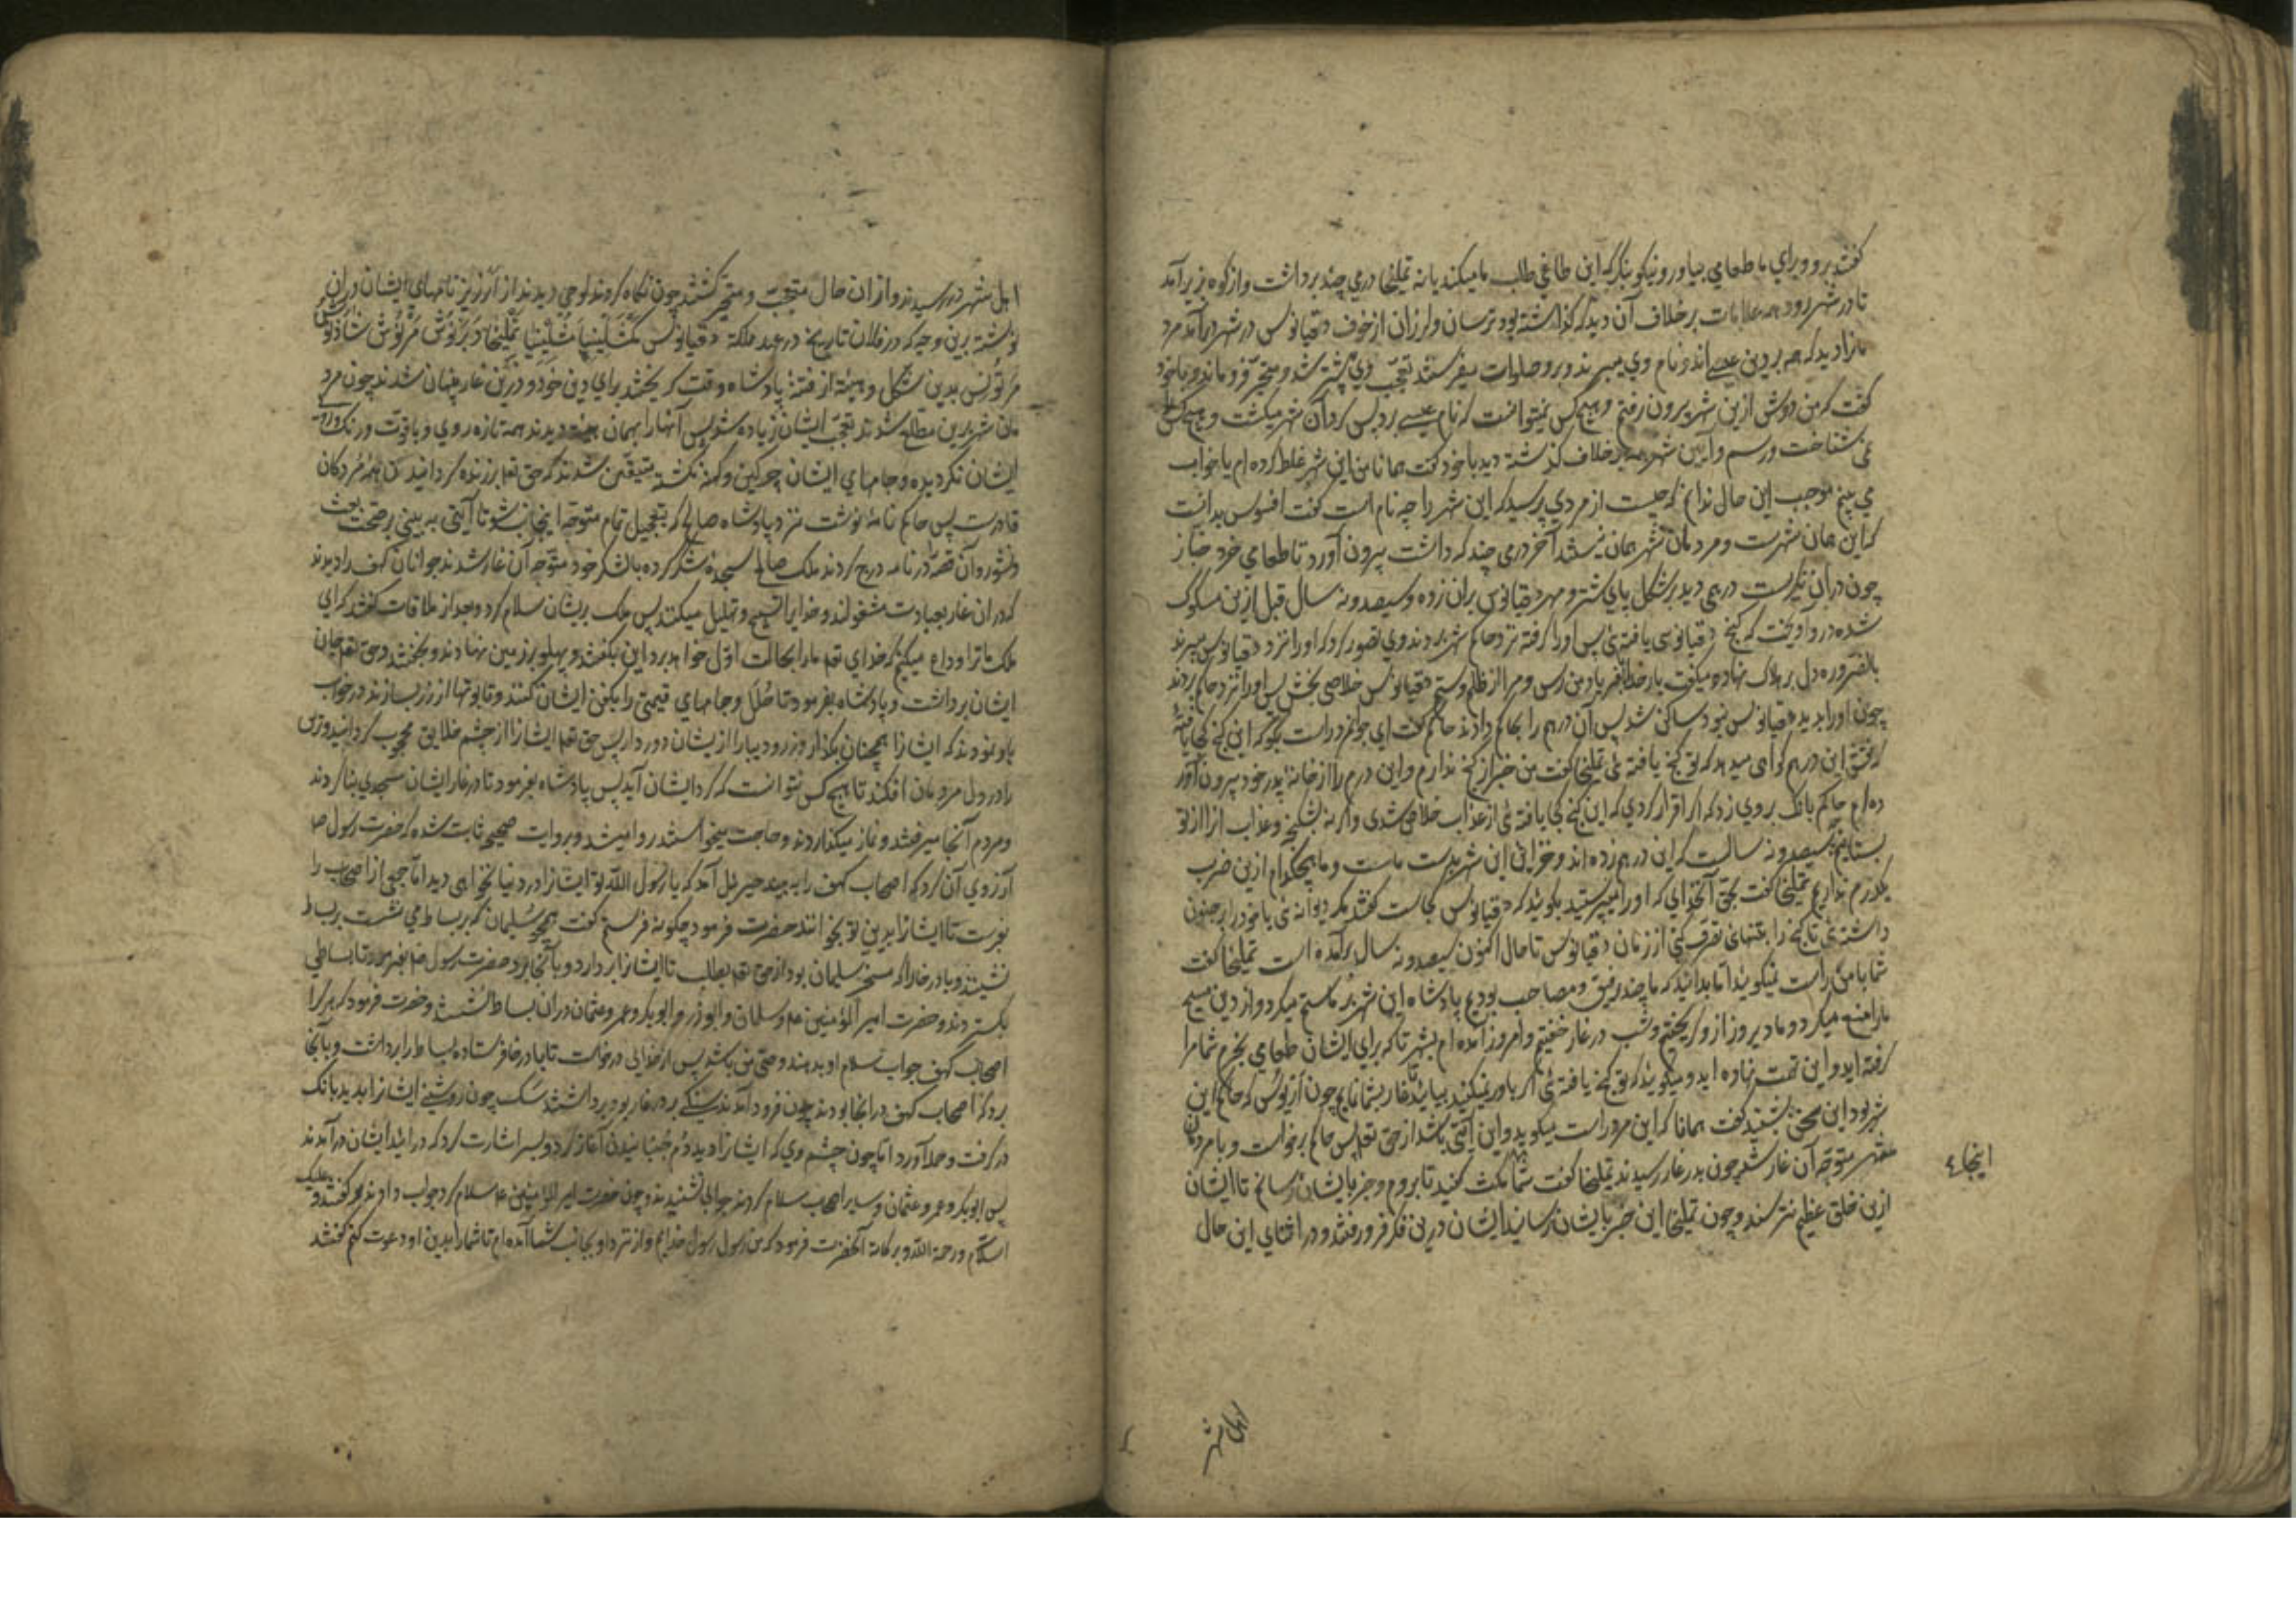 گفتند برو و برای ما طعامی بیاور و نیکو بنگر که این طاغی طلب ما میکند یا نه تملیخا درمی چند برداشت و از کوه زیر آمد
تا در شهر رود همه علامات برخلاف آن دید که گذاشته بود ترسان و لرزان از خوف دقیانوس در شهر درآمد مرد
مانرا دید که همه بر دین عیسی اند و نام وی میبرند و برو صلوات میفرستند تعجب وی بیشتر شد و متحیر فرو ماند و با خود
گفت که من دوش ازین شهر بیرون رفتم و هیچ کس نمیتوانست که نام عیسی برد پس گرد آن شهر میگشت و هیچ کس
نمی شناخت و رسم و آیین شهر همه برخلاف گذشته دید با خود گفت همانا من این شهر غلط کرده ام یا خواب
می بینم موجب این حال ندانم که چیست از مردی پرسید که این شهر را چه نام است گفت افسوس بدانست
که این همان شهرست و مردمان شهر همان نیستند آخر درمی چند که داشت بیرون آورد تا طعامی خرد خباز
چون در آن نگریست درهمی دید بر شکل پای شتر و مهر دقیانوس بران زده و سیصد و نه سال قبل ازین مسکوک
شده درو آویخت که گنج دقیانوسی یافته ئی پس او را گرفته نزد حاکم شهر بردند وی تصور کرد که او را نزد دقیانوس میبرند
بالضروره دل بر هلاک نهاده میگفت بار خدایا بفریاد من رس و مرا از ظلم و ستم دقیانوس خلاصی بخش پس او را نزد حاکم بردند
چون او را بدید دقیانوس نبود ساکن شد پس آن درهم را بحاکم دادند حاکم گفت ای جوانمرد راست بگو که این گنج کجا یافته
که نقش این درهم گواهی میدهد که تو گنج یافته ئی تملیخا گفت من خبر از گنج ندارم و این درم را از خانه پدر خود بیرون آور
ده ام حاکم بانگ بر وی زد که اگر اقرار کردی که این گنج کجا یافته ئی از عذاب خلاص شدی و اگر نه بشکنجه و عذاب آنرا از تو
بستانیم سیصد و نه سالست که این درهم زده اند و خزائن این شهر بدست ماست و ما هیچکدام ازین ضرب
یکدرم نداریم تملیخا گفت بحق آنخدای که او را میپرستید بگویید که دقیانوس کجاست گفتند مگر دیوانه ئی یا خود را بر جنون
داشته ئی تا گنج را بتنهائی تصرف کنی از زمان دقیانوس تا حال اکنون سیصد و نه سال برآمده است تملیخا گفت
شما با من راست نمیگویید اما بدانید که ما چند رفیق و مصاحب بودیم پادشاه این شهر بر ما ستم میکرد و از دین مسیح
ما را منع میکرد و ما دیروز ازو گریختیم و شب در غار خفتیم و امروز آمده ام بشهر تا که برای ایشان طعامی بخرم شما مرا
گرفته اید و این تهمت نهاده اید و میگویید که تو گنج یافته ئی اگر باور نمیکنید بیایید تا غار بشما نمایم چون ازیوس که حاکم این
شهر بود این سخن بشنید گفت همانا که این مرد راست میگوید و این آیتی باشد از حق تعالی پس حاکم برخواست و با مردمان
شهر متوجه آن غار شد چون بدر غار رسیدند تملیخا گفت شما مکث کنید تا بروم و خبر بایشان رسانم تا ایشان
ازین خلق عظیم نترسند و چون تملیخا این خبر بایشان رسانید ایشان درین فکر فرو رفتند و در اثنای این حال
اینجا ٤
اهل شهر
اهل شهر در رسیدند و از آن حال متعجب و متحیر گشتند چون نگاه کردند لوحی دیدند از ارزیز نامهای ایشان در آن
نوشته برین وجه که در فلان تاریخ در عهد ملکة دقیانوس مکسلینیا مثلینیا تملیخا دبرنوش مرنوش شاذنوش
مرتونس بدین شکل و هیئة از فتنۀ پادشاه وقت گریختند برای دین خود و درین غار پنهان شدند چون مرد
مان شهر برین مطلع شدند تعجب ایشان زیاده شد پس آنها را بهمان دیدند همه تازه روی و با قوت و رنگ و روی
ایشان نگردیده و جامهای ایشان چرکین و کهنه نگشته متیقن شدند که حق تعالی بر زنده گردانیدن همۀ مردگان
قادرست پس حاکم نامۀ نوشت نزد پادشاه صالح که بتعجیل تمام متوجه اینجانب شو تا آیتی به بینی بر صحت بعث
و نشور و آن قصه در نامه درج کردند ملک صالح سجدۀ شکر کرده با لشکر خود متوجه آن غار شدند جوانان کهف را دیدند
که در آن غار بعبادت مشغولند و خدایرا تسبیح و تهلیل میکنند پس ملک بریشان سلام کرد و بعد از ملاقات گفتند که ای
ملک ما ترا وداع میکنیم که خدای تعالی ما را بحالت اول خواهد برد این بگفتند و پهلو بر زمین نهادند و بخفتند و حق تعالی جان
ایشان برداشت و پادشاه بفرمود تا حلل و جامهای قیمتی را بکفن ایشان کنند و تابوتها از زر بسازند در خواب
باو نمودند که ایشان را همچنان بگذار و زر و دیبا را از یشان دور دار پس حق تعالی ایشانرا از چشم خلایق محجوب گردانید و رعبی
را در دل مردمان افکند تا هیچ کس نتوانست که گرد ایشان آید پس پادشاه بفرمود تا در غار ایشان مسجدی بنا کردند
و مردم آنجا میرفتند و نماز میگذاردند و حاجت میخواستند روا میشد و بروایت صحیح ثابت شده که حضرت رسول ص
آرزوی آن کرد که اصحاب کهف را به بیند جبرئیل آمد که یا رسول الله تو ایشانرا در دنیا نخواهی دید اما جمعی از اصحاب را
بفرست تا ایشانرا بدین تو بخوانند حضرت فرمود چگونه فرستم گفت همچو سلیمان که بر بساط می نشست بر بساط
نشینند و باد رخا را که مسخر سلیمان بود از حق تعالی بطلب تا ایشانرا بردارد و بآنجا برد حضرت رسول ص بفرمود تا بساطی
بگستردند و حضرت امیر المؤمنین ع و سلمان و ابوذر و ابوبکر و عمر و عثمان در آن بساط نشستند و حضرت فرمود که هر کرا
اصحاب کهف جواب سلام او بدهند وصی من باشد پس از خدای درخواست تا باد رخا فرستاده بساط را برداشت و بآنجا
برد که اصحاب کهف در آنجا بودند چون فرود آمدند سنگی بر در غار بود برداشتند سگ چون روشنی ایشانرا بدید بانک
در گرفت و حمله آورد اما چون چشم وی که ایشانرا دید دم جنبانیدن آغاز کرد و بسر اشارت کرد که در آئید ایشان در آمدند
پس ابوبکر و عمر و عثمان و سایر اصحاب سلام کردند جوابی نشنیدند و چون حضرت امیر المؤمنین ع سلام کرد جواب دادند و گفتند و علیک
السلام و رحمة الله و برکاته آنحضرت فرمود که من رسول رسول خدایم و از نزد او بجانب شما آمده ام تا شما را بدین او دعوت کنم گفتند